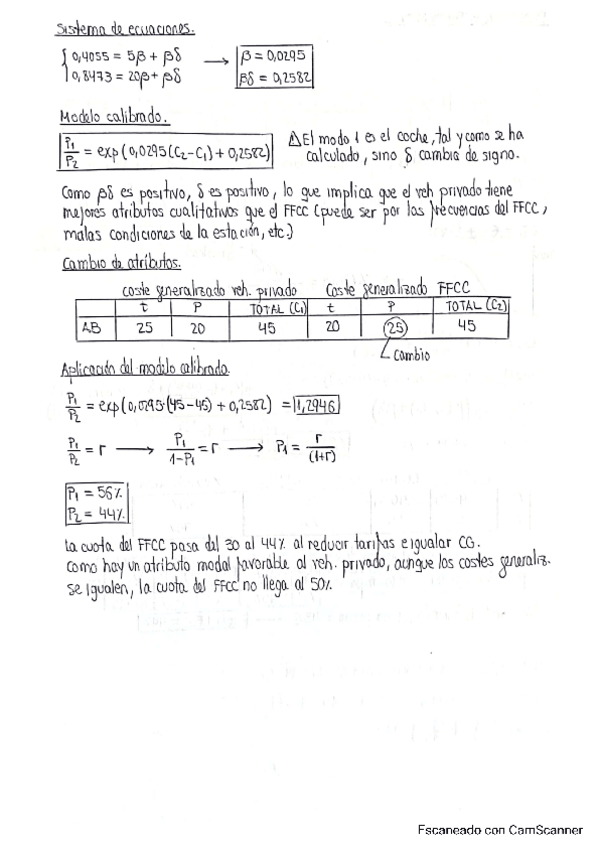 Sistema de ecuaciones.
{0,4055 = 5β + βδ
{0,8473 = 20β + βδ
→ β = 0,0295
βδ = 0,2582
Modelo calibrado.
P1/P2 = exp(0,0295(C2-C1) + 0,2582)
⚠El modo 1 es el coche, tal y como se ha
calculado, sino δ cambia de signo.
Como βδ es positivo, δ es positivo, lo que implica que el veh privado tiene
mejores atributos cualitativos que el FFCC (puede ser por las frecuencias del FFCC,
malas condiciones de la estación, etc.)
Cambio de atributos.
coste generalizado veh. privado Coste generalizado FFCC
t P TOTAL (C1) t P TOTAL (C2)
AB 25 20 45 20 25 45
cambio
Aplicación del modelo calibrado
P1/P2 = exp(0,0295·(45-45) + 0,2582) = 1,2946
P1/P2 = r → P1/1-P1 = r → P1 = r/(1+r)
P1 = 56%
P2 = 44%
La cuota del FFCC pasa del 30 al 44% al reducir tarifas e igualar CG.
Como hay un atributo modal favorable al veh. privado, aunque los costes generaliz.
se igualen, la cuota del FFCC no llega al 50%.
Escaneado con CamScanner